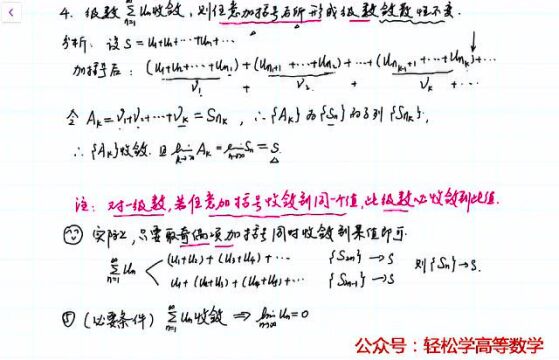 4. 级数 ∞∑n=1 Un收敛, 则任意加括号后所形成级数敛散性不变.
分析. 设 S = U1+U2+···+Un+···
加括号后: (U1+U2+···+Un1) + (Un1+1+···+Un2) + ···+ (Unk-1+1+···+Unk)+···
V1 + V2 + Vk + ···
令 Ak = V1+V2+···+Vk = Snk, ∴ {Ak} 为 {Sn} 的子列 {Snk},
∴ {Ak}收敛. 且 lim k→∞ Ak = lim n→∞ Sn = S
注: 对一级数, 若任意加括号收敛到同一个值, 此级数必收敛到此值.
实际上, 只要取奇偶项加括号同时收敛到某值即可.
∞∑n=1 Un < (U1+U2) + (U3+U4) + ··· {S2n} → S
U1 + (U2+U3) + (U4+U5) + ··· {S2n-1} → S 则 {Sn} → S.
⑤ (必要条件) ∞∑n=1 Un收敛 ⇒ lim n→∞ Un = 0
公众号：轻松学高等数学